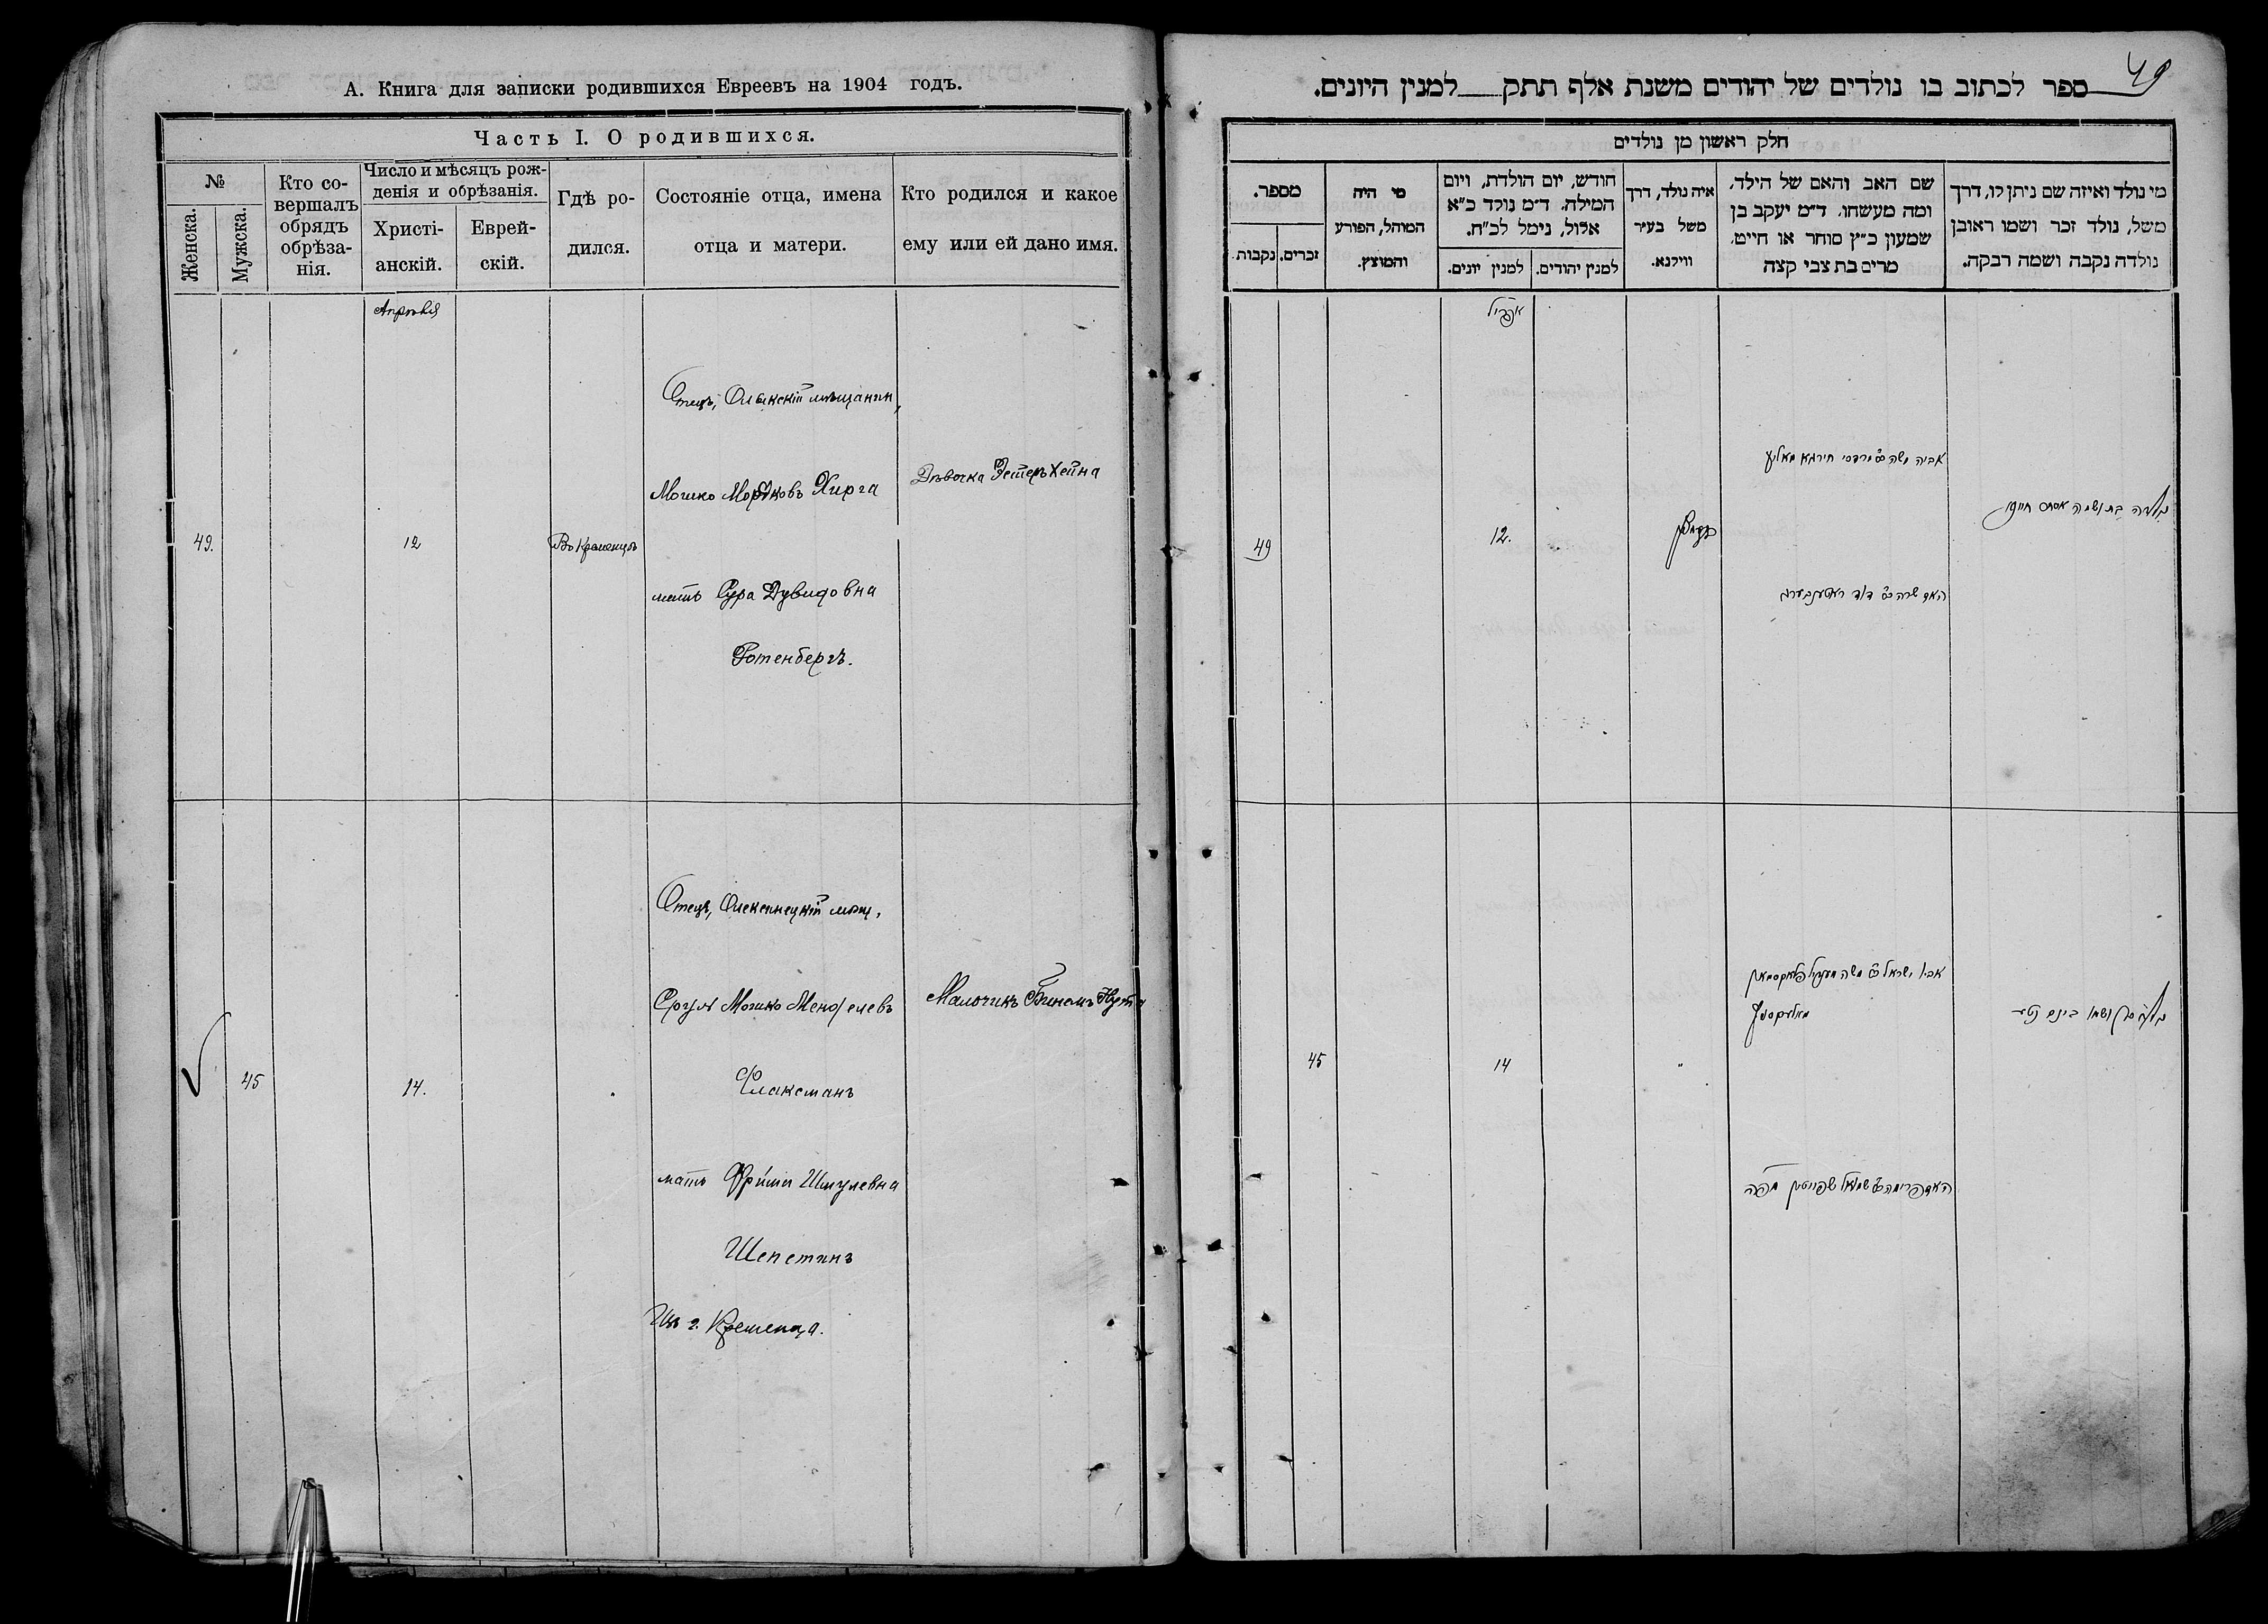 А. Книга для записки родившихся Евреевъ на 1904 годъ.
Часть I. О родившихся.
№
Женска.
Мужска.
Кто совершалъ обрядъ обрѣзанія.
Число и мѣсяцъ рожденія и обрѣзанія.
Христіанскій.
Еврейскій.
Гдѣ родился.
Состояніе отца, имена
отца и матери.
Кто родился и какое
ему или ей дано имя.
Апрѣля
49.
12
Въ Кременцѣ
Отецъ, Олыкскій мѣщанин,
Мошко Мордковъ Хирга
мать Сура Дувидовна
Ротенбергъ.
Дѣвочка Эстеръ Хейна
45
14.
Отецъ, Олексинецкій мѣщ.
Сруль Мошко Менделевъ
Флаксманъ
мать Фрима Шмулевна
Шепетинъ
Из г. Кременца.
Мальчикъ Бинемъ Нута
49
ספר לכתוב בו נולדים של יהודים משנת אלף תתק למנין היונים.
חלק ראשון מן נולדים
מי נולד ואיזה שם ניתן לו, דרך
משל, נולד זכר ושמו ראובן
נולדה נקבה ושמה רבקה.
שם האב והאם של הילד,
ומה מעשהו. ד״מ יעקב בן
שמעון כ״ץ סוחר או חייט.
מרים בת צבי קצה
איה נולד, דרך
משל בעיר
ווילנא.
חודש, יום הולדת, ויום
המילה. ד״מ נולד כ״א
אלול, נימל לכ״ח.
למנין יהודים.
למנין יונים.
מי היה
המוהל, הפורע
והמוצץ.
מספר.
זכרים.
נקבות.
אפריל
נולדה בת ושמה אסתר חיינה
אביה משה ב״ר מרדכי חירגא
האם שרה ב״ר דוד ראטענבערג
12.
49
אביו ישראל משה מענדיל פלאקסמאן
האם פרימה ב״ר שמואל שפיטין מפה
14
45